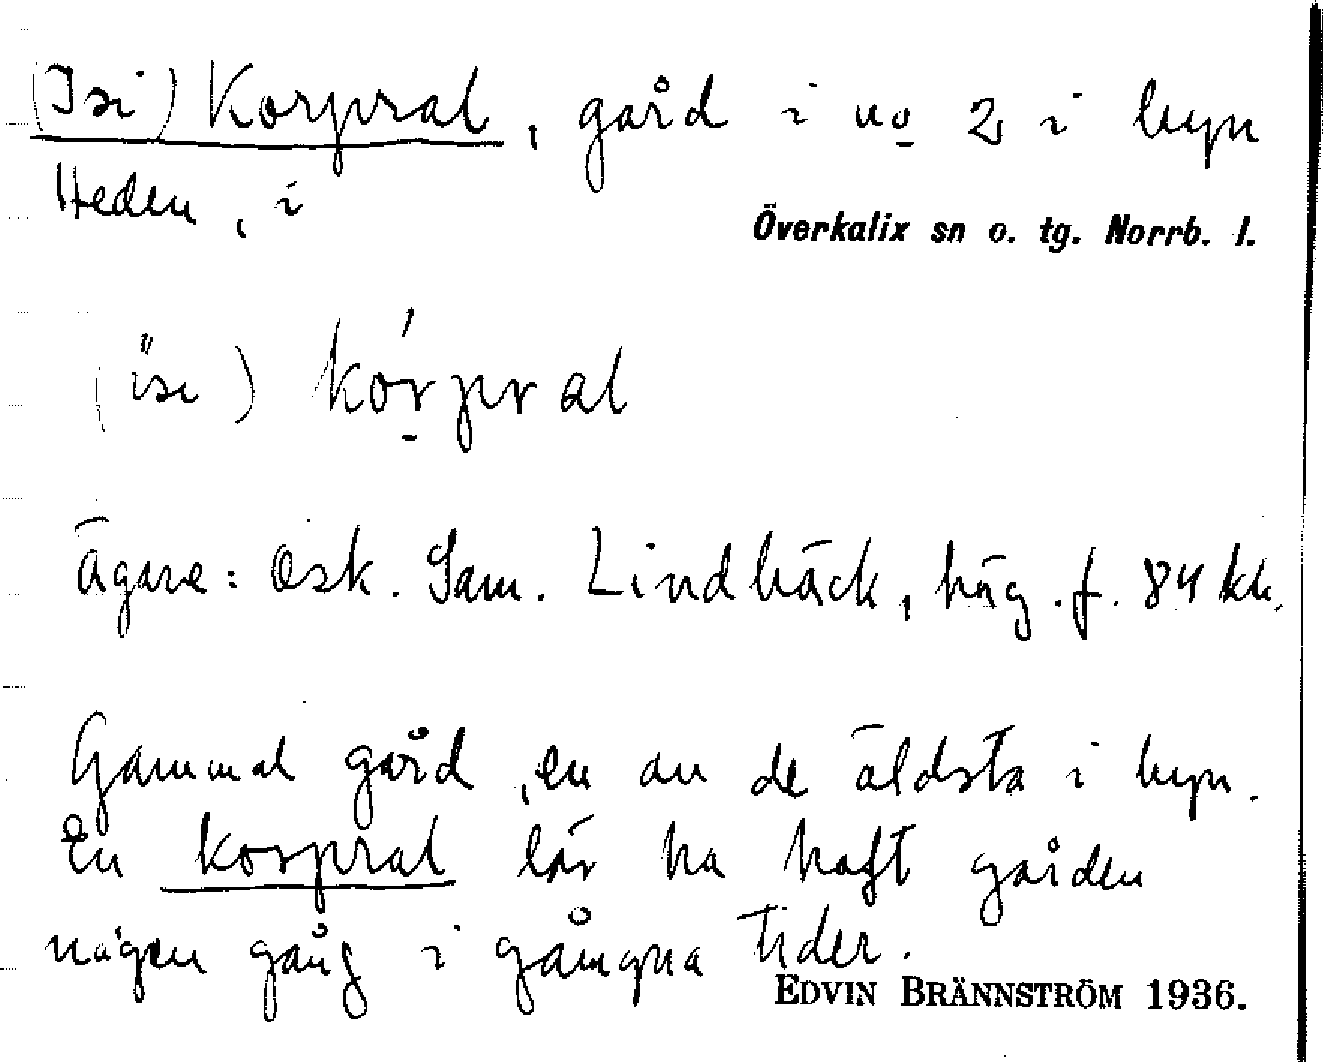 (Isi) Korpral, gård i no 2 i byn
Heden, i
Överkalix sn o. tg. Norrb. l.
(isi) kórpral
Ägare: Osk. Sam. Lindbäck, häg. f. 84 kk.
Gammal gård, en av de äldsta i byn.
En korpral lär ha haft gården
någon gång i gångna tider.
EDVIN BRÄNNSTRÖM 1936.